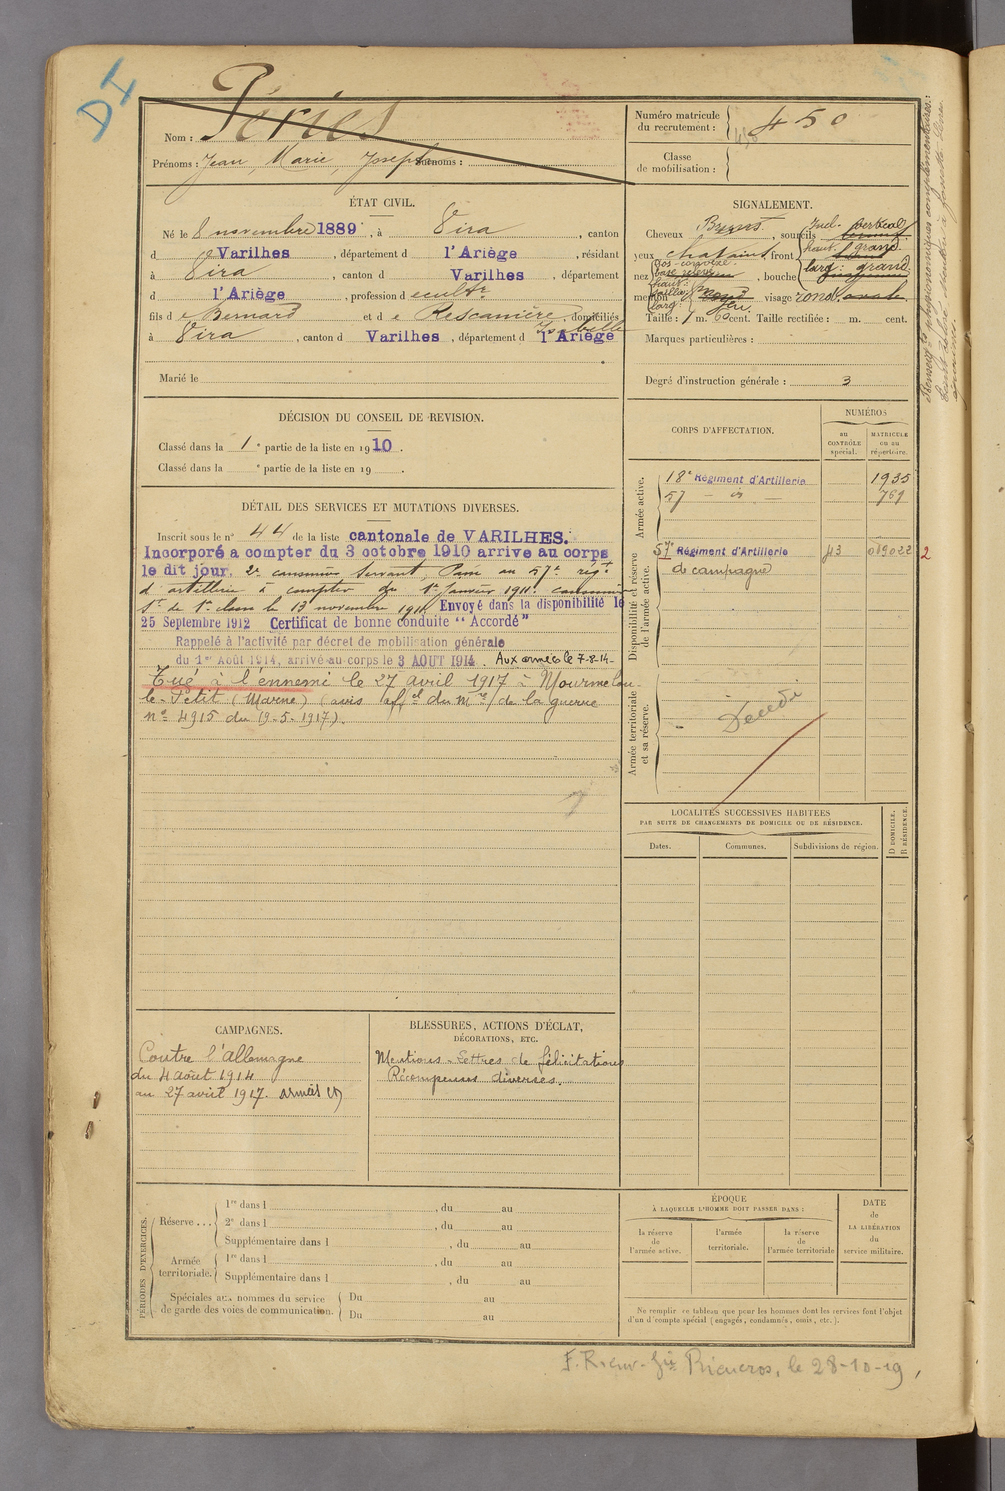 DI
Nom : Péries
Prénoms : Jean, Marie, Joseph Surnoms :
Numéro matricule du recrutement : 450
Classe de mobilisation :
ÉTAT CIVIL.
Né le 8 novembre 1889, à Vira, canton
d Varilhes, département d l'Ariège, résidant
à Vira, canton d Varilhes
d l'Ariège, profession d cultr
fils de Bernard et de Rescanière Isabelle, domiciliés
à Vira, canton d Varilhes, département d l'Ariège
Marié le
SIGNALEMENT.
Cheveux Bruns, sourcils
yeux chatains front
Incl. vertical
haut. grand
larg. grand
nez, bouche
dos convexe
base
haut.
saillie
larg.
menton visage rond ovale
Taille : 1 m. 60 cent. Taille rectifiée : m. cent.
Marques particulières :
Degré d'instruction générale : 3
Renseignts physionomiques complémentaires :
DÉCISION DU CONSEIL DE REVISION.
Classé dans la 1e partie de la liste en 1910.
Classé dans la e partie de la liste en 19 .
DÉTAIL DES SERVICES ET MUTATIONS DIVERSES.
Inscrit sous le n° 44 de la liste cantonale de VARILHES.
Incorporé a compter du 3 octobre 1910 arrive au corps
le dit jour. 2e canonnier servant, Passé au 57e régt
d'artillerie à compter du 1er Janvier 1911. canonnier
st de 1re classe le 13 novembre 1911 Envoyé dans la disponibilité le
25 Septembre 1912 Certificat de bonne conduite "Accordé"
Rappelé à l'activité par décret de mobilisation générale
du 1er Août 1914, arrivé au corps le 3 AOUT 1914. Aux armées le 7-8-14-
Tué à l'ennemi le 27 avril 1917 à Mourmelon
le-Petit (Marne) (avis offel du mre de la guerre
n° 4915 du 19-5-1917).
CORPS D'AFFECTATION.
NUMÉROS
au CONTRÔLE spécial.
MATRICULE ou au répertoire.
Armée active.
18e Régiment d'Artillerie 1935
57 - d° - 761
Disponibilité et réserve de l'armée active.
57e Régiment d'Artillerie 43 019022 2
de campagne
Armée territoriale et sa réserve.
LOCALITÉS SUCCESSIVES HABITÉES
PAR SUITE DE CHANGEMENTS DE DOMICILE OU DE RÉSIDENCE.
Dates. Communes. Subdivisions de région. D DOMICILE. R RÉSIDENCE.
CAMPAGNES.
Contre l'Allemagne
du 4 août 1914
au 27 avril 1917. armées
BLESSURES, ACTIONS D'ÉCLAT,
DÉCORATIONS, ETC.
Mentions - Lettres de félicitations
Récompenses diverses.
PÉRIODES D'EXERCICES.
Réserve ...
1re dans l , du au
2e dans l , du au
Supplémentaire dans l , du au
Armée territoriale.
1re dans l , du au
Supplémentaire dans l , du au
Spéciales aux hommes du service de garde des voies de communication.
Du au
Du au
ÉPOQUE
À LAQUELLE L'HOMME DOIT PASSER DANS :
la réserve de l'armée active. l'armée territoriale. la réserve de l'armée territoriale
DATE de LA LIBÉRATION du service militaire.
Ne remplir ce tableau que pour les hommes dont les services font l'objet
d'un d compte spécial (engagés, condamnés, omis, etc.).
le 28-10-19